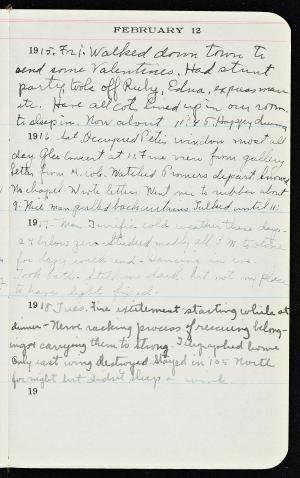 FEBRUARY 12
1915. Fri. Walked down town to
send some Valentines. Had stunt
party, took off Ruby, Edna, express man
etc. Have all cots lined up in our room
to sleep in. Now about 11:45. Happy
1916 Sat. Occupied window most all
day. Glee Concert at 11. Fine view from gallery
letter from H. Watched Promers depart
No chapel. Wrote letters. Went me to about
9: "Nice" man pulled back curtains. Talked until 11:
1917- Mon Terrific cold weather these days-
24 below zero. Studied madly all P.M. to
for lazy week end. Dancing in eve.
Took bath. dark but not my place
to have lights fixed.
1918 Tues. Fire excitement starting while at
dinner - Nerve racking process of rescuing belong-
ings & carrying them to Strong. Telegraphed home
Only east wing destroyed. Stayed in 105 North
for night but didn't sleep a wink.
19